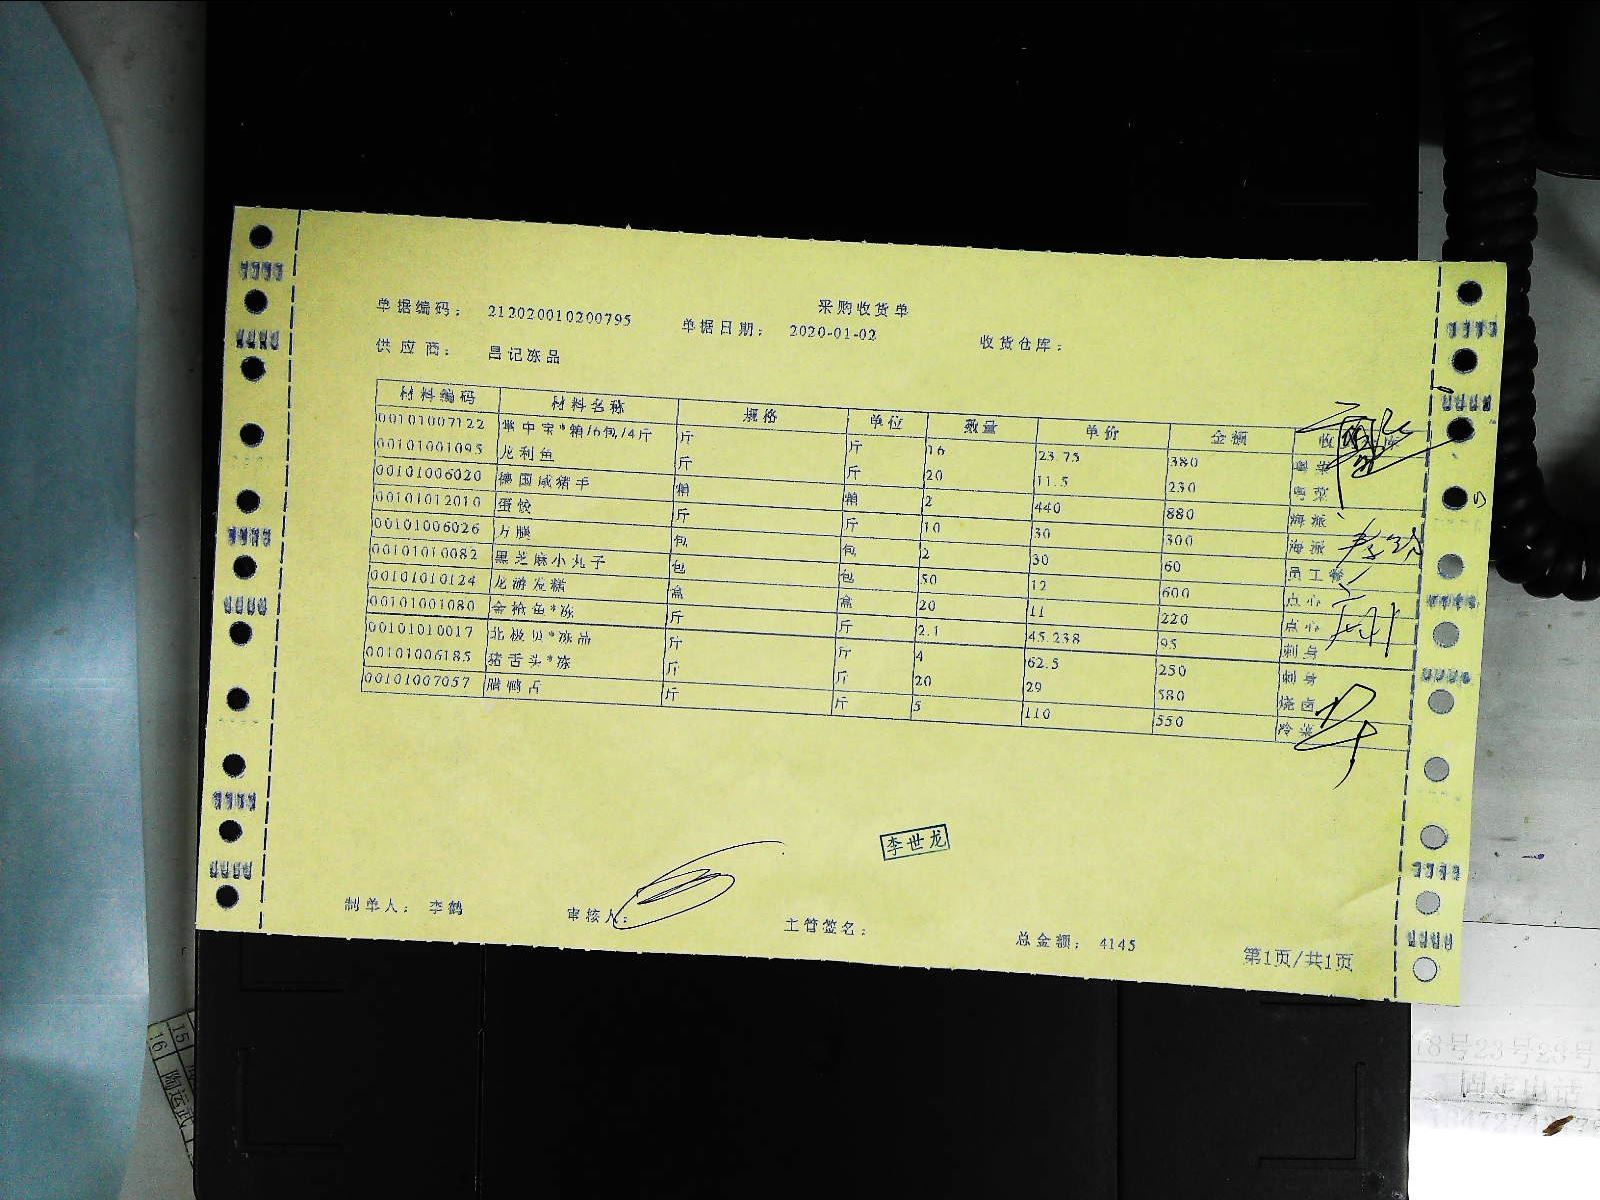 采购收货单
单据编码： 212020010200795 单据日期： 2020-01-02 收货仓库：
供应商： 昌记冻品
材料编码 材料名称 规格 单位 数量 单价 金额 收
00101007122 掌中宝*箱/6包/4斤 斤 斤 16 23.75 380 粤菜
00101001095 龙利鱼 斤 斤 20 11.5 230 粤菜
00101006020 德国咸猪手 箱 箱 2 440 880 海派
00101012010 蛋饺 斤 斤 10 30 300 海派
00101006026 方腿 包 包 2 30 60 员工餐
00101010082 黑芝麻小丸子 包 包 50 12 600 点心
00101010124 龙游发糕 盒 盒 20 11 220 点心
00101001080 金枪鱼*冻 斤 斤 2.1 45.238 95 刺身
00101010017 北极贝*冻品 斤 斤 4 62.5 250 刺身
00101006185 猪舌头*冻 斤 斤 20 29 580 烧卤
00101007057 腊鸭舌 斤 斤 5 110 550 冷菜
李世龙
制单人： 李鹤 审核人： 主管签名： 总金额： 4145 第1页/共1页
15
16 陶运武
18号23号28号
固定电话